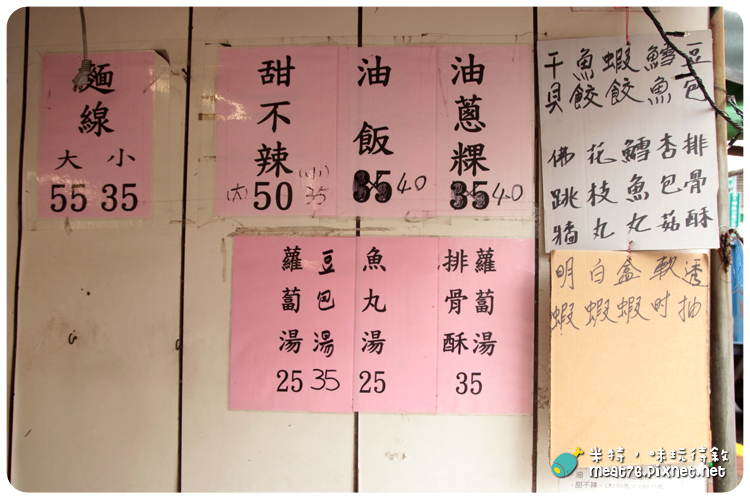 麵線
大 小
55 35
甜不辣
(大)50 (小)35
油飯
35 40
油蔥粿
35 40
蘿蔔湯
25
豆包湯
35
魚丸湯
25
排骨酥
蘿蔔湯
35
豆包
鱈魚
蝦餃
魚餃
干貝
排骨酥
杏包菇
鱈魚丸
花枝丸
佛跳牆
明蝦
白蝦
盒蝦
軟时
透抽
米特，味玩待敘
meat76.pixnet.net